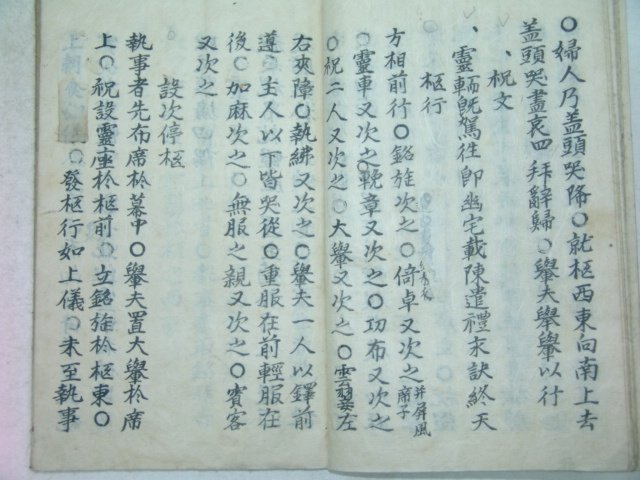 ○婦人乃盖頭哭降○就柩西東向南上去
盖頭哭盡哀四拜辭歸○轝夫擧轝以行
、祝文
、靈輀旣駕徃卽幽宅載陳遣禮永訣終天
柩行
方相前行○銘旌次之○倚卓又次之并屏風席子
○靈車又次之○輓章又次之○功布又次之
○祝二人又次之○大轝又次之○雲翣左
右夾障○執紼又次之○轝夫一人以鐸前
導○主人以下皆哭從○重服在前輕服在
後○加麻次之○無服之親又次之○賓客
又次之
設次停柩
執事者先布席於幕中○轝夫置大轝於席
上○祝設靈座於柩前○立銘旌於柩東○
上朝食○發柩行如上儀○未至執事